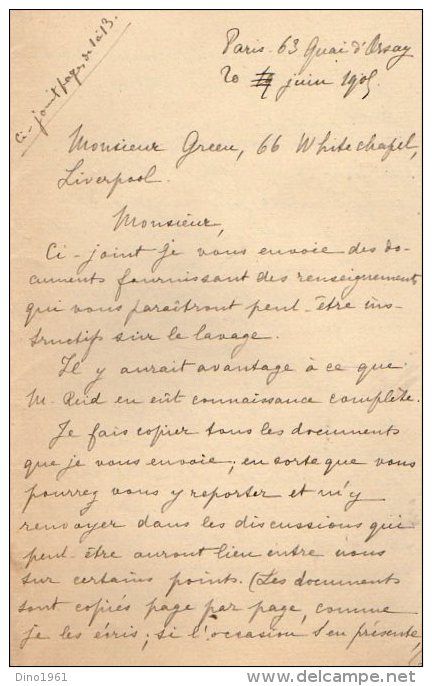 Ci-joint pages de 1 à 13.
Paris. 63 Quai d'Orsay
20 juin 1905
Monsieur Green, 66 Whitechapel,
Liverpool.
Monsieur,
Ci-joint je vous envoie des do-
cuments fournissant des renseignements
qui vous paraîtront peut-être ins-
tructifs sur le lavage.
Il y aurait avantage à ce que
M. Reid en eût connaissance complète.
Je fais copier tous les documents
que je vous envoie; en sorte que vous
pourrez vous y reporter et m'y
renvoyer dans les discussions qui
peut-être auront lieu entre nous
sur certains points. (Les documents
sont copiés page par page, comme
je les écris; si l'occasion s'en présente,
Dino1961
delcampe.net